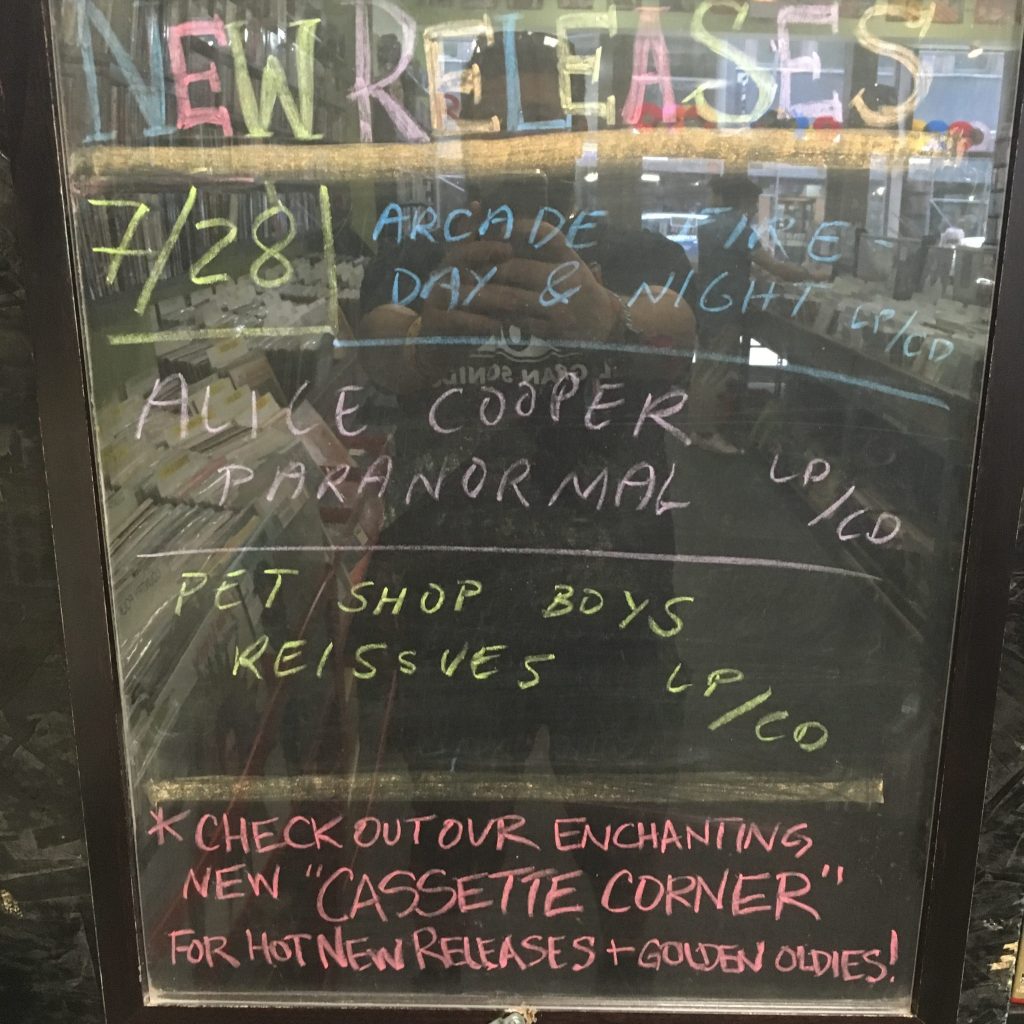 NEW RELEASES
7/28
ARCADE FIRE -
DAY & NIGHT LP/CD
ALICE COOPER
PARANORMAL LP/CD
PET SHOP BOYS
REISSUES LP/CD
* CHECK OUT OUR ENCHANTING
NEW "CASSETTE CORNER"
FOR HOT NEW RELEASES + GOLDEN OLDIES!